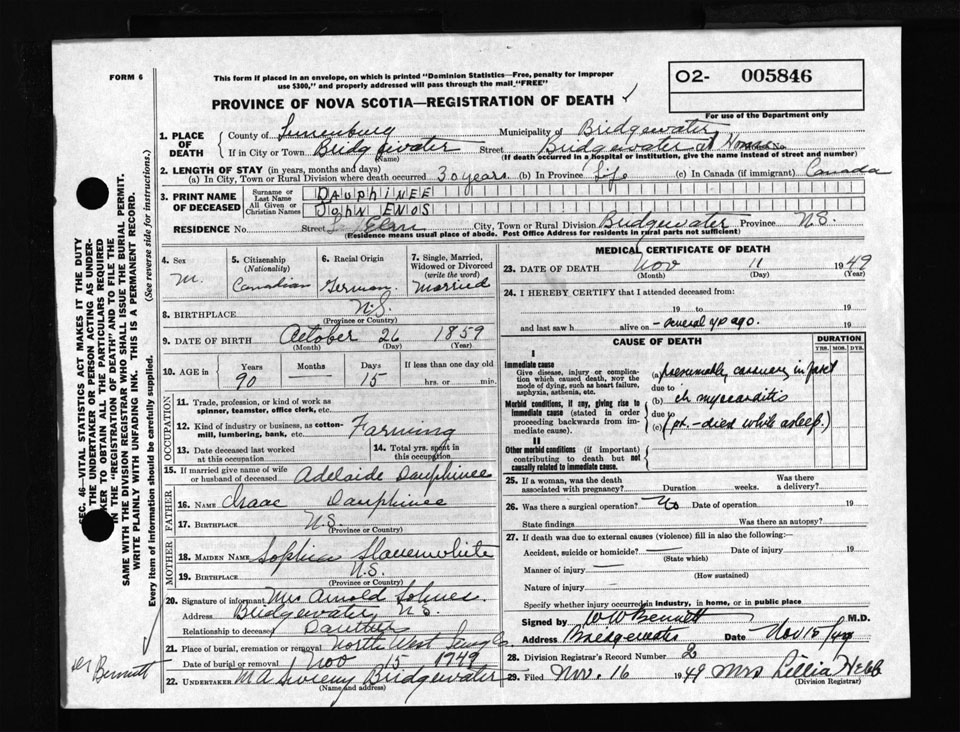 FORM 6
This form if placed in an envelope, on which is printed "Dominion Statistics—Free, penalty for improper
use $300," and properly addressed will pass through the mail "FREE"
O2- 005846
For use of the Department only
PROVINCE OF NOVA SCOTIA—REGISTRATION OF DEATH
1. PLACE OF DEATH
County of Lunenburg Municipality of Bridgewater
If in City or Town Bridgewater Street Bridgewater at Home No.
(Name) (If death occurred in a hospital or institution, give the name instead of street and number)
2. LENGTH OF STAY (in years, months and days)
(a) In City, Town or Rural Division where death occurred 30 years (b) In Province Life (c) In Canada (if immigrant) Canada
3. PRINT NAME OF DECEASED
Surname or Last Name DAUPHINEE
All Given or Christian Names JOHN ENOS
RESIDENCE No. Street Elm City, Town or Rural Division Bridgewater Province N.S.
(Residence means usual place of abode. Post Office Address for residents in rural parts not sufficient)
4. Sex M.
5. Citizenship (Nationality) Canadian
6. Racial Origin German
7. Single, Married, Widowed or Divorced (write the word) Married
8. BIRTHPLACE N.S.
(Province or Country)
9. DATE OF BIRTH October 26 1859
(Month) (Day) (Year)
10. AGE in Years 90 Months — Days 15 If less than one day old hrs. or min.
OCCUPATION
11. Trade, profession, or kind of work as spinner, teamster, office clerk, etc.
12. Kind of industry or business, as cotton-mill, lumbering, bank, etc. Farming
13. Date deceased last worked at this occupation
14. Total yrs. spent in this occupation
15. If married give name of wife or husband of deceased Adelaide Dauphinee
FATHER
16. NAME Isaac Dauphinee
17. BIRTHPLACE N.S.
(Province or Country)
MOTHER
18. MAIDEN NAME Sophia Slauenwhite
19. BIRTHPLACE N.S.
(Province or Country)
20. Signature of informant Mrs Arnold
Address Bridgewater N.S.
Relationship to deceased
21. Place of burial, cremation or removal North West
Date of burial or removal Nov 15 1949
22. UNDERTAKER M A Bridgewater
(Name and address)
MEDICAL CERTIFICATE OF DEATH
23. DATE OF DEATH Nov 11 1949
(Month) (Day) (Year)
24. I HEREBY CERTIFY that I attended deceased from:
19 to 19
and last saw h alive on - several yr ago. 19
CAUSE OF DEATH
DURATION
YRS. MOS. DYS.
I
Immediate cause
Give disease, injury or complication which caused death, NOT the mode of dying, such as heart failure, asphyxia, asthenia, etc.
(a) presumably coronary infarct
due to
Morbid conditions, if any, giving rise to immediate cause (stated in order proceeding backwards from immediate cause).
(b) ch myocarditis
due to
(c) (pt. - died while asleep.)
II
Other morbid conditions (if important) contributing to death but not causally related to immediate cause.
25. If a woman, was the death associated with pregnancy? Duration weeks. Was there a delivery?
26. Was there a surgical operation? No Date of operation 19
State findings Was there an autopsy?
27. If death was due to external causes (violence) fill in also the following:
Accident, suicide or homicide? — Date of injury 19
(State which)
Manner of injury —
(How sustained)
Nature of injury —
Specify whether injury occurred in industry, in home, or in public place
Signed by W W Bennett M.D.
Address Bridgewater Date Nov 15/49
28. Division Registrar's Record Number 2
29. Filed Nov. 16 1949 Mrs Lillia Hebb
(Division Registrar)
SEC. 46—VITAL STATISTICS ACT MAKES IT THE DUTY
OF THE UNDERTAKER OR PERSON ACTING AS UNDERTAKER TO OBTAIN ALL THE PARTICULARS REQUIRED
IN THE "REGISTRATION OF DEATH" AND TO FILE THE
SAME WITH THE DIVISION REGISTRAR WHO SHALL ISSUE THE BURIAL PERMIT.
WRITE PLAINLY WITH UNFADING INK. THIS IS A PERMANENT RECORD.
Every item of information should be carefully supplied. (See reverse side for instructions.)
Dr Bennett